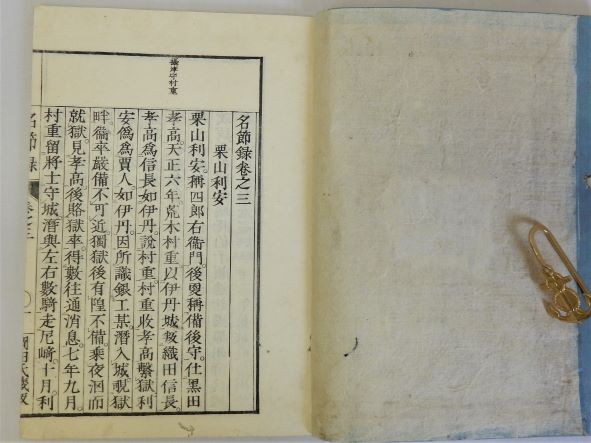 名節録卷之三
栗山利安
栗山利安稱四郎右衞門後更稱備後守仕黒田
孝高天正六年荒木村重以伊丹城叛織田信長
孝高爲信長如伊丹說村重村重收孝高繫獄利
安僞爲賈人如伊丹因所識銀工某潛入城覘獄
畔衞卒嚴備不可近獨獄後有隍不備乘夜泅而
就獄見孝高後賂獄率得數往通消息七年九月
村重留將士守城潛與左右數騎走尼﨑十月利
攝津守村重
名節録
卷之三
一
岡田氏藏版